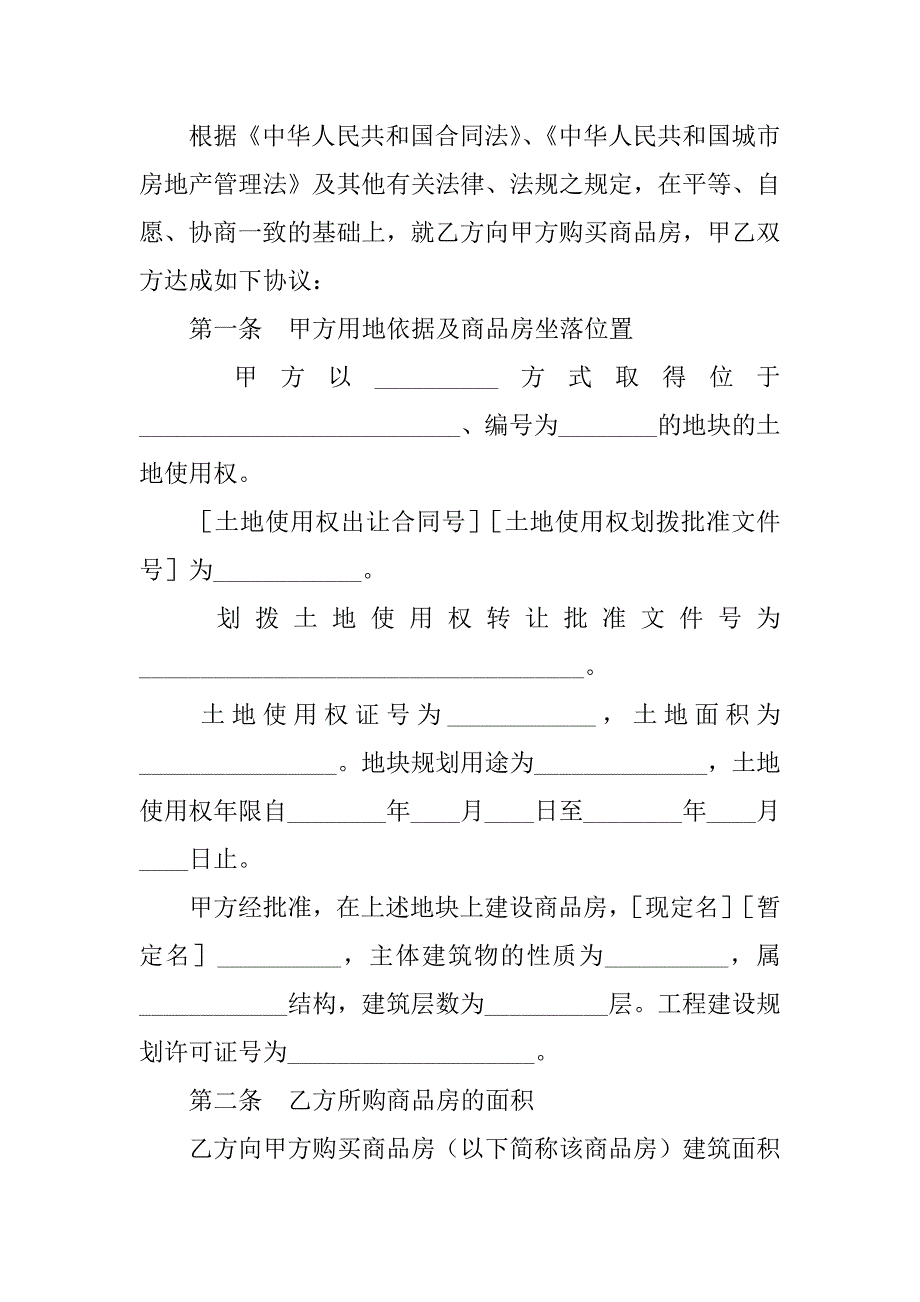 根据《中华人民共和国合同法》、《中华人民共和国城市
房地产管理法》及其他有关法律、法规之规定，在平等、自
愿、协商一致的基础上，就乙方向甲方购买商品房，甲乙双
方达成如下协议：
第一条　甲方用地依据及商品房坐落位置
甲方以__________方式取得位于
__________________________、编号为________的地块的土
地使用权。
［土地使用权出让合同号］［土地使用权划拨批准文件
号］为____________。
划拨土地使用权转让批准文件号为
____________________________________。
土地使用权证号为____________，土地面积为
________________。地块规划用途为______________，土地
使用权年限自________年____月____日至________年____月
____日止。
甲方经批准，在上述地块上建设商品房，［现定名］［暂
定名］__________，主体建筑物的性质为__________，属
____________结构，建筑层数为__________层。工程建设规
划许可证号为____________________。
第二条　乙方所购商品房的面积
乙方向甲方购买商品房（以下简称该商品房）建筑面积